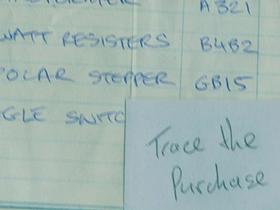 A321
WATT RESISTERS B4B2
POLAR STEPPER GB15
GLE SWITC
Trace the
Purchase